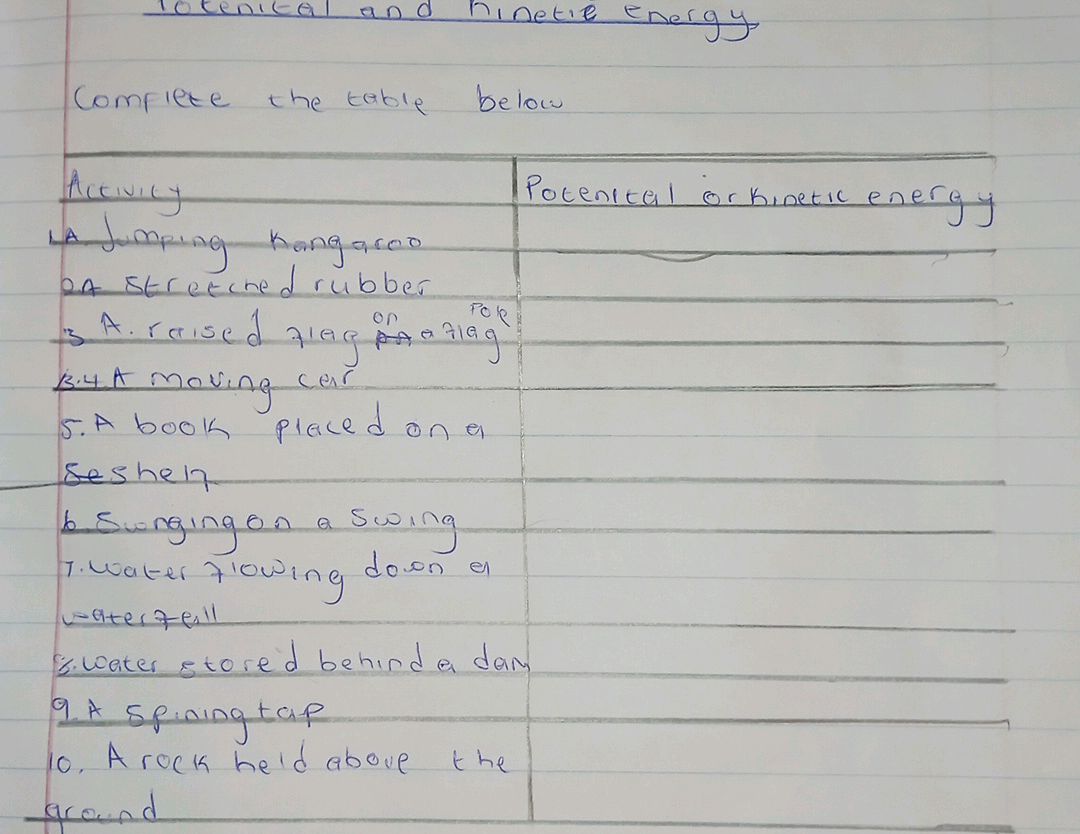 Potenical and kinetic energy
Complete the table below
Activity
Potenical or kinetic energy
1. A Jumping kangaroo
2. A Stretched rubber
3 A. raised flag on a flag Pole
4 A moving car
5. A book placed on a
Se shelf
6. Swinging on a swing
7. water flowing down a
waterfall
8. water stored behind a dam
9. A Spining tap
10. A rock held above the
ground